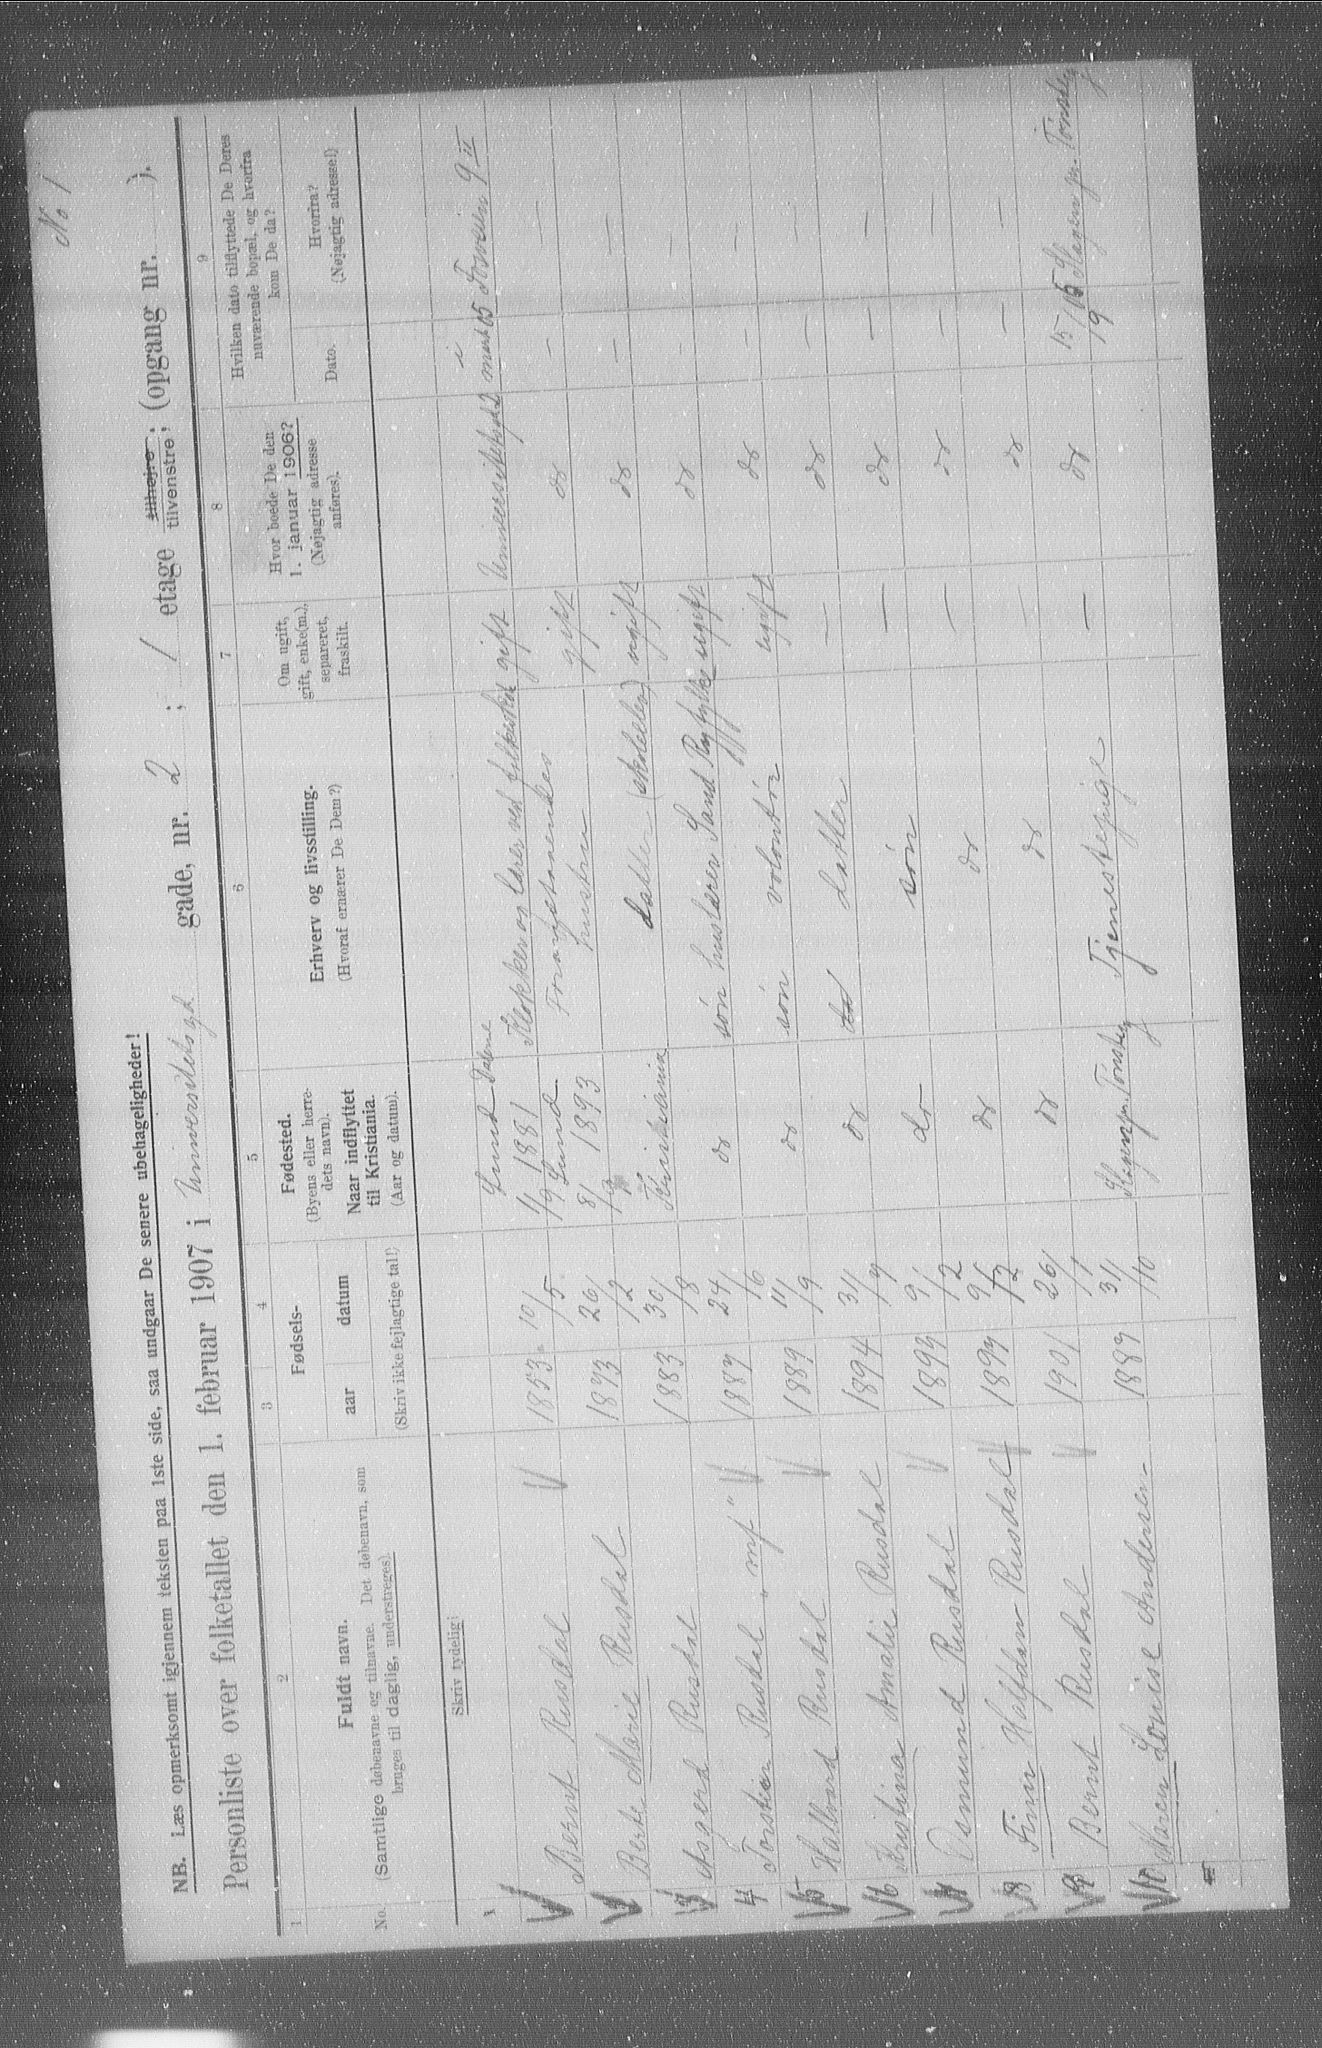 No 1
NB. Læs opmerksomt igjennem teksten paa 1ste side, saa undgaar De senere ubehageligheder!
Personliste over folketallet den 1. februar 1907 i Universitetsgd gade, nr. 2 ; 1 etage tilhøjre, tilvenstre; (opgang nr. ).
1 2 3 4 5 6 7 8 9
No. Fuldt navn. (Samtlige døbenavne og tilnavne. Det døbenavn, som bruges til daglig, understreges).
Fødsels- aar datum (Skriv ikke fejlagtige tal!)
Fødested. (Byens eller herredets navn). Naar indflyttet til Kristiania. (Aar og datum).
Erhverv og livsstilling. (Hvoraf ernærer De Dem?)
Om ugift, gift, enke(m.), separeret, fraskilt.
Hvor boede De den 1. januar 1906? (Nøjagtig adresse anføres).
Hvilken dato tilflyttede De Deres nuværende bopæl, og hvorfra kom De da?
Dato. Hvorfra? (Nøjagtig adresse!)
Skriv tydelig!
1 Bernt Rusdal 1853 10/5 Lund Dalene 1/9 1881 Klokker og lærer ved folkeskol gift Universitetsgd 2 i mark 05 9 IV
Berte Marie Rusdal 1873 26/2 Lund 8/7 1893 Foranstaaendes hustru gift do — —
3 Asgerd Rusdal 1883 30/8 Kristiania datter (skoleelev) ugift do — —
4 Torstein Rusdal 1887 24/6 do søn huslærer Sand Ryfylke ugift do
5 Hallvard Rusdal 1889 11/9 do søn volontør ugift do — —
6 Kristina Amalie Rusdal 1894 31/7 do datter — do — —
7 Osmund Rusdal 1897 9/2 do søn — do — —
8 Finn Halfdan Rusdal 1897 9/2 do do — do —
9 Bernt Rusdal 1901 26/1 do do — do — —
10 Maren Louise Andersen 1889 31/10 Slagen pr. Tønsberg Tjenestepige — do 15/9 05 Slagen pr. Tønsberg